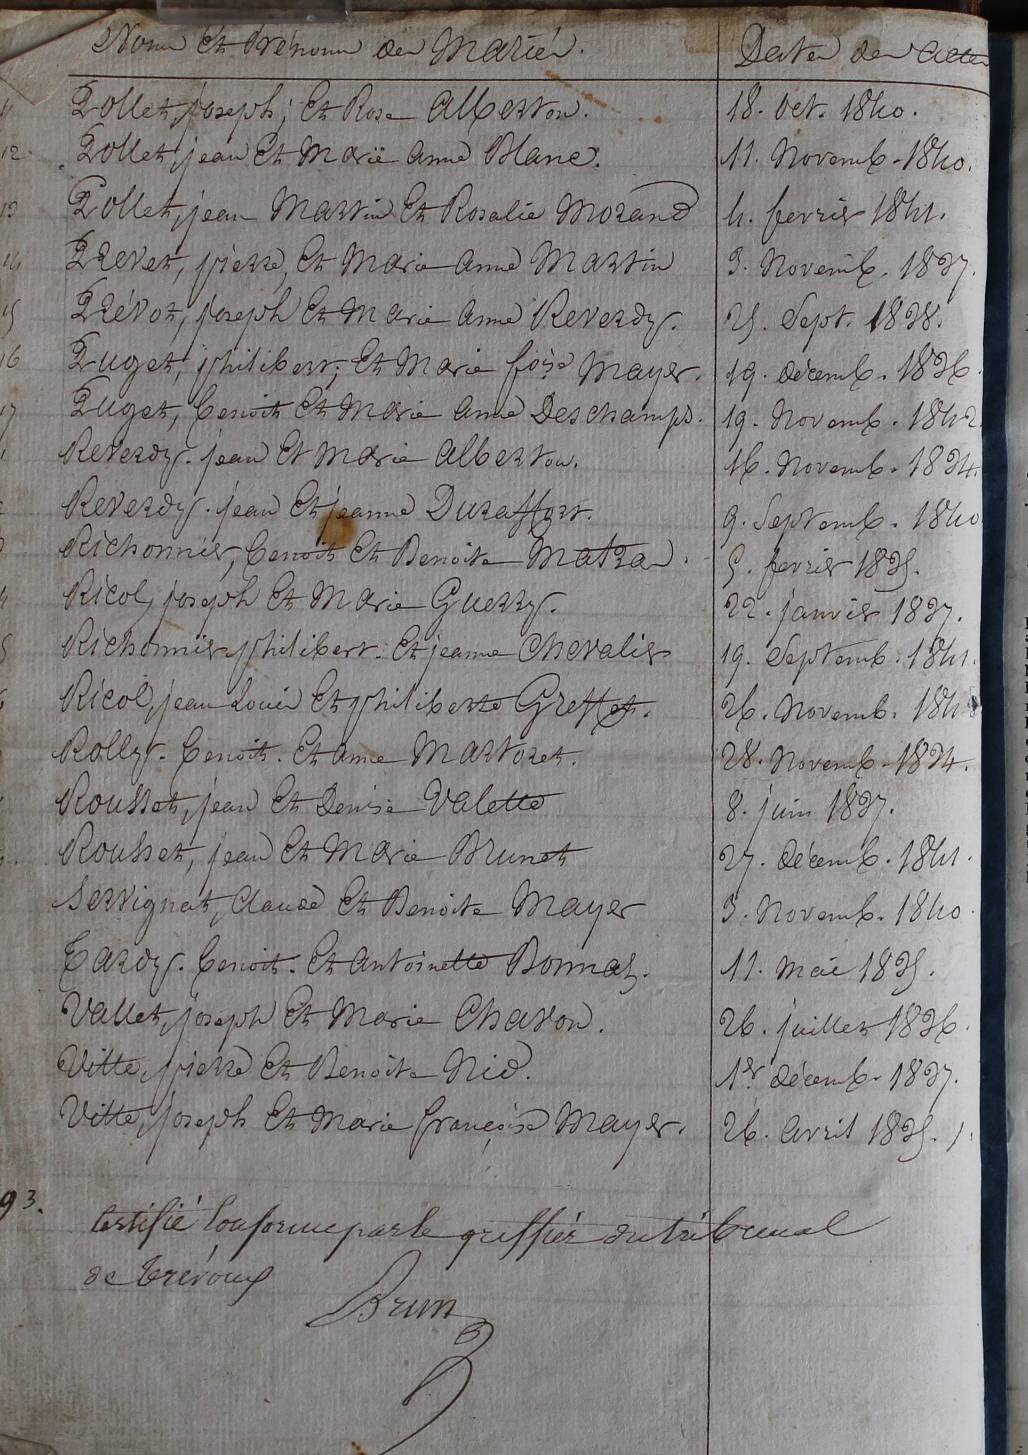 Noms et Prénoms des Mariés. Dates des Actes
11 Pollet, joseph; et Rose Alberton. 18. Oct. 1840.
12 Pollet, jean et Marie Anne Blanc. 11. Novemb. 1840.
13 Pollet, jean Martin et Rosalie Morand 4. fevrier 1841.
14 Prevet, pierre, et Marie Anne Martin 3. Novemb. 1837.
15 Prévot, joseph et Marie Anne Reverdy. 25. Sept. 1838.
16 Puget, philibert; et Marie fçoise Mayer. 19. décemb. 1836.
17 Puget, benoit et Marie Anne Deschamps. 19. Novemb. 1842.
Reverdy. jean et Marie Alberton. 16. Novemb. 1834.
Reverdy. jean et jeanne Duraffort. 9. Septemb. 1840
Richonnier, benoit et Benoite Matra. 5. fevrier 1835.
Ricol, joseph et Marie Guerry. 22. janvier 1837.
Richonnier philibert. et jeanne Chevalier 19. Septemb. 1841.
Ricol, jean Louis et philiberte Greffet. 26. Novemb.
Rolly. benoit. et anne Martoret. 28. Novemb. 1834.
Rousset, jean et Denise Valette 8. juin 1837.
Rousset, jean et Marie Brunet 27. décemb. 1841.
Servignat, Claude et Benoite Mayer 3. Novemb. 1840.
Tardy. benoit. et antoinette Bonnat. 11. Mai 1835.
Vallet, joseph et Marie Chavon. 26. juillet 1836.
Vitte, pierre et Benoite Nid. 1er décemb. 1837.
Vitte, joseph et Marie françoise Mayer. 26. Avril 1835.
93.
Certifié Conforme par le greffier du tribunal
de trévoux
Brun